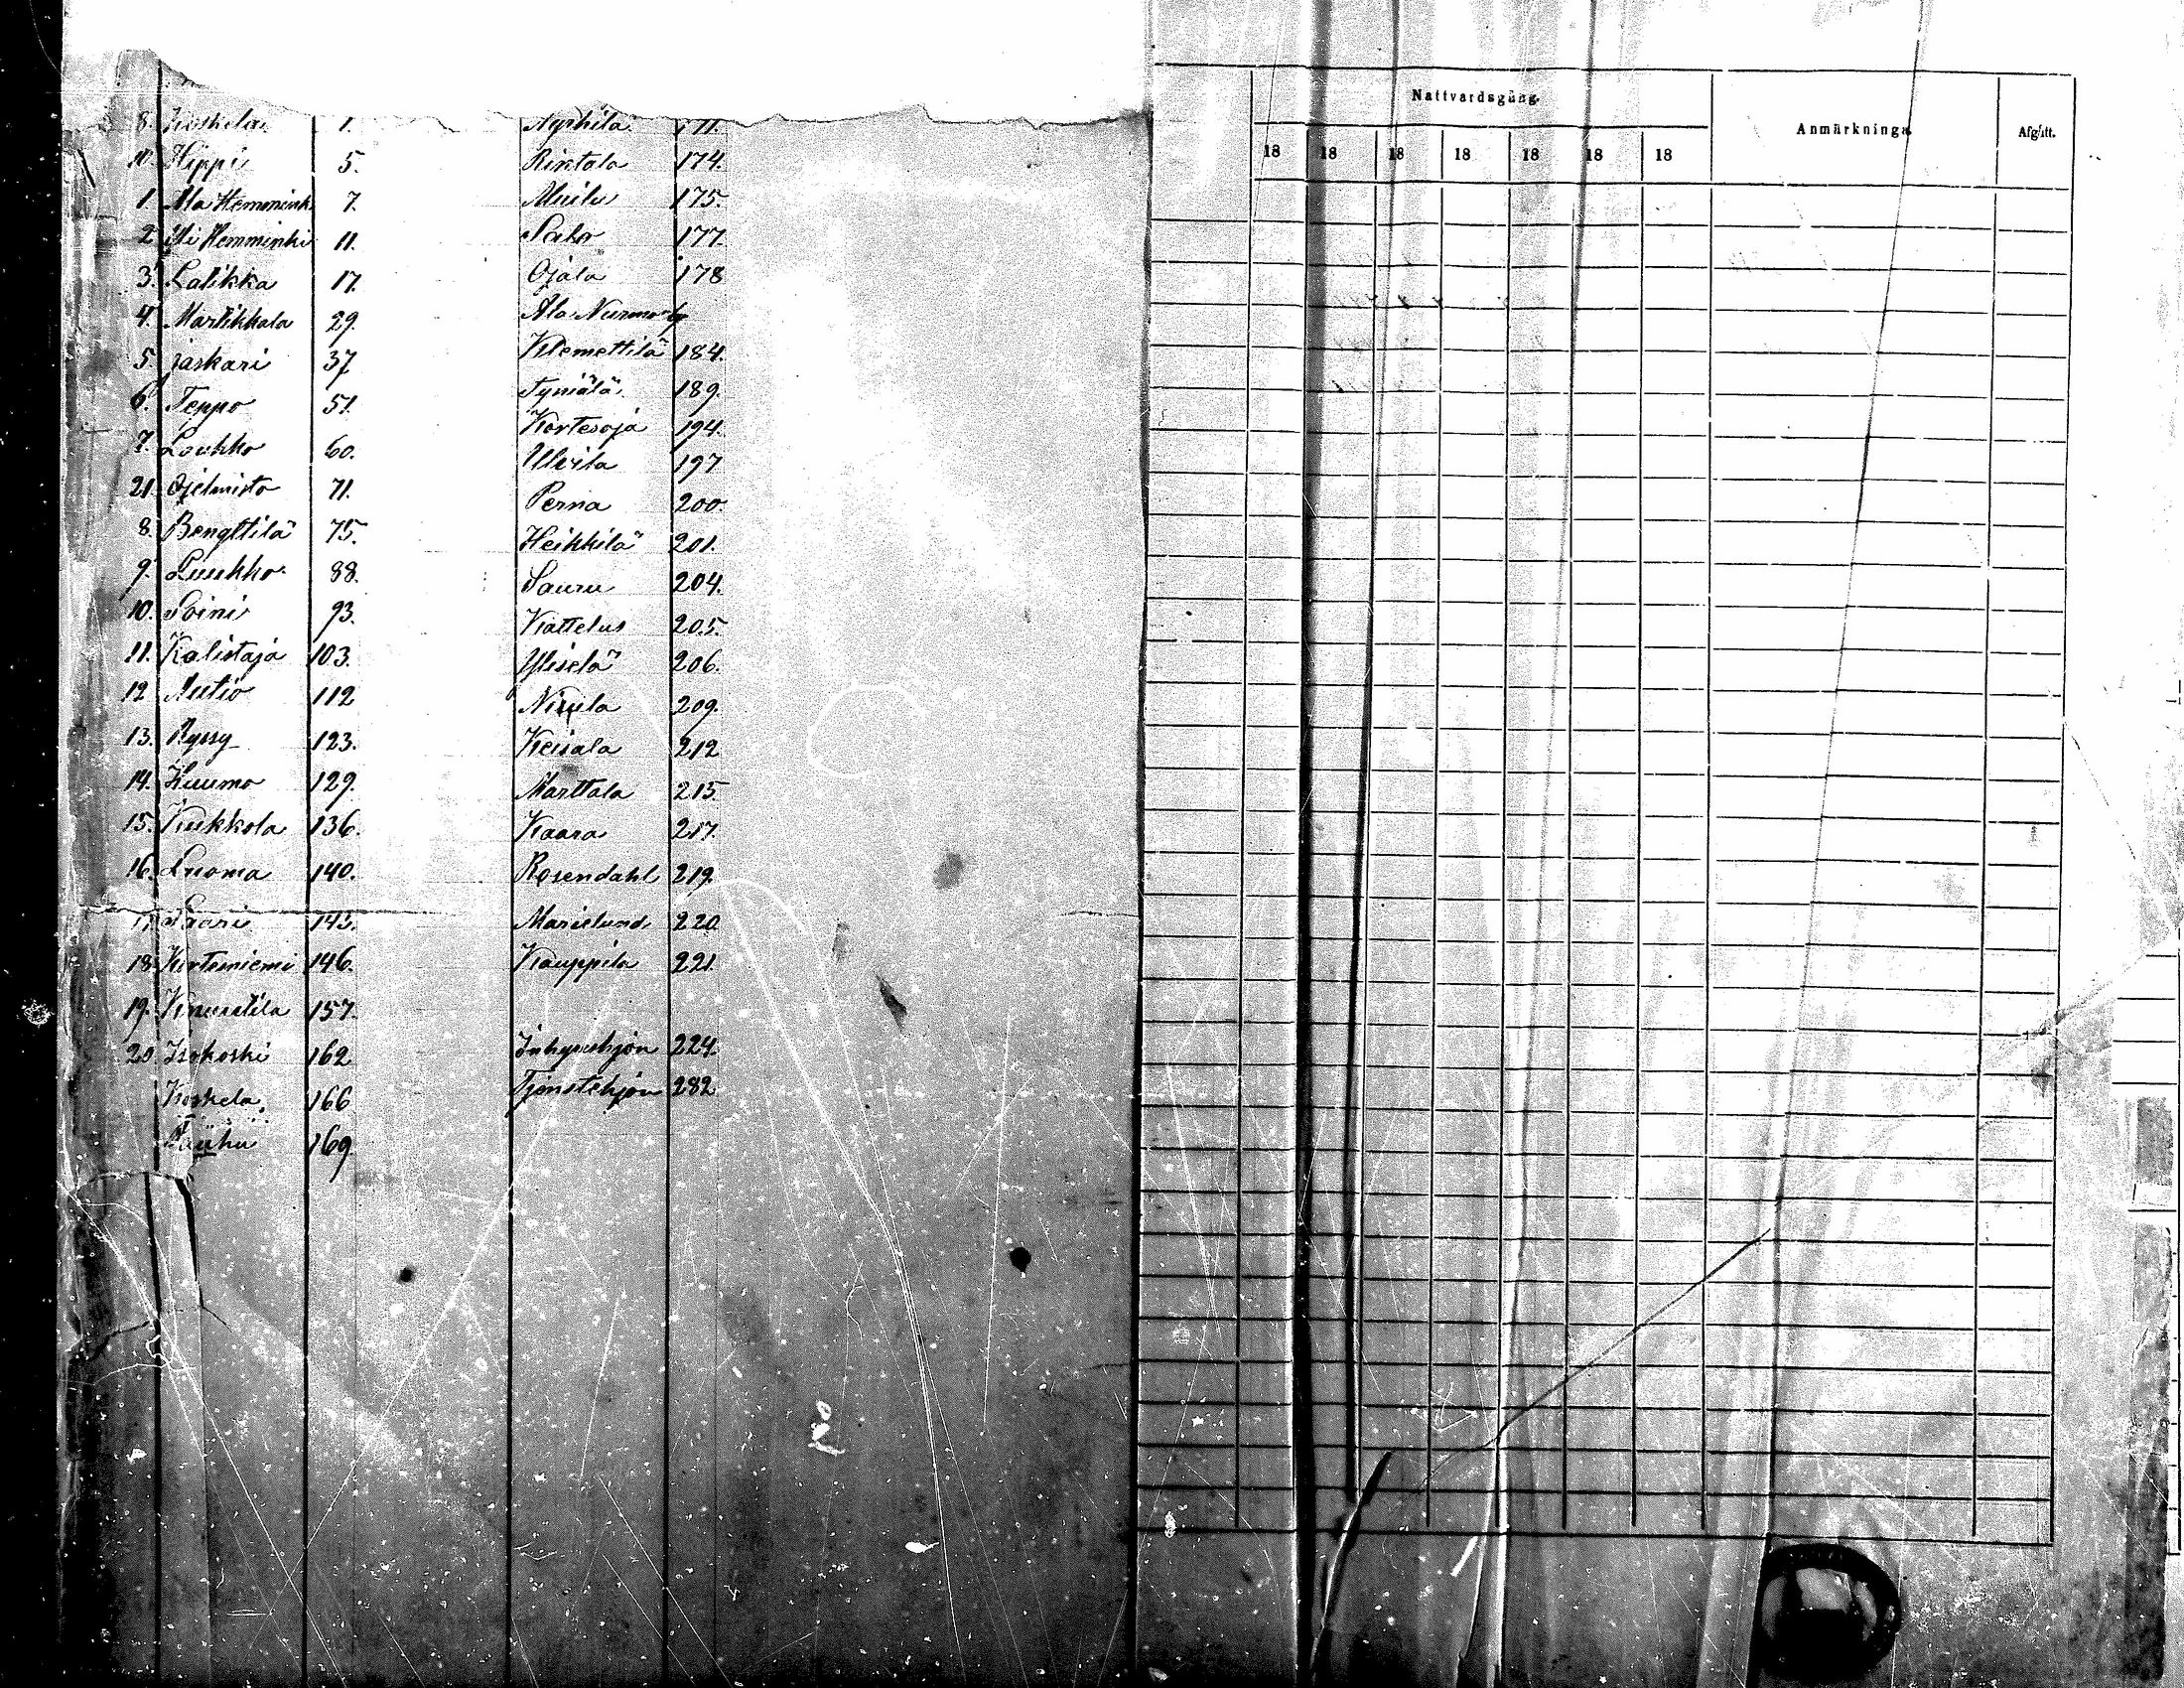 8. Koskela 1.
10. Hippi 5.
1. Ala Hemmink 7.
2 Yli Hemminki 11.
3. Latikka 17.
4. Martikkala 29.
5. Jaskari 37
6. Teppo 51.
7. Loukko 60.
21. Ojelmisto 71.
8. Bengttilä 75.
9. Luukko 88.
10. Soini 93.
11. Kalistaja 103.
12 Autio 112
13. Ryssy 123.
14. Kuumo 129.
15. Kukkola 136.
16. Luoma 140.
Saari 143.
18. Kortemiemi 146.
19. Knuuttila 157.
20. Isokoski 162
Koskela 166
169.
Nyrhilä 171.
Rintala 174.
Muilu 175.
Salo 177.
Ojala 178
Ala Nurmo by
Klemettilä 184.
Tyniälä 189.
Kortesoja 194.
Ulvila 197
Perna 200.
Heikkilä 201.
Sauru 204.
Kattelus 205.
Yliselä 206.
Nikula 209.
Keisala 212
Marttala 215.
Kaara 217.
Rosendahl 219.
Marielund 220
Kauppila 221.
Inhyseshjon 224.
Tjenstehjon 282
Nattvardsgång.
Anmärkningar
Afgått.
18 18 18 18 18 18 18